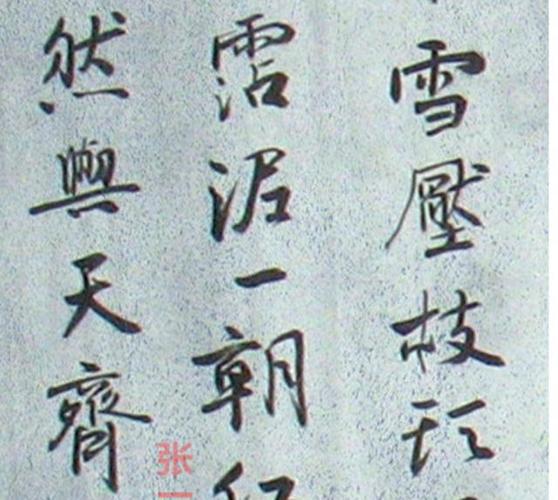 雪壓枝頭
霑泥一朝
然與天齊
张